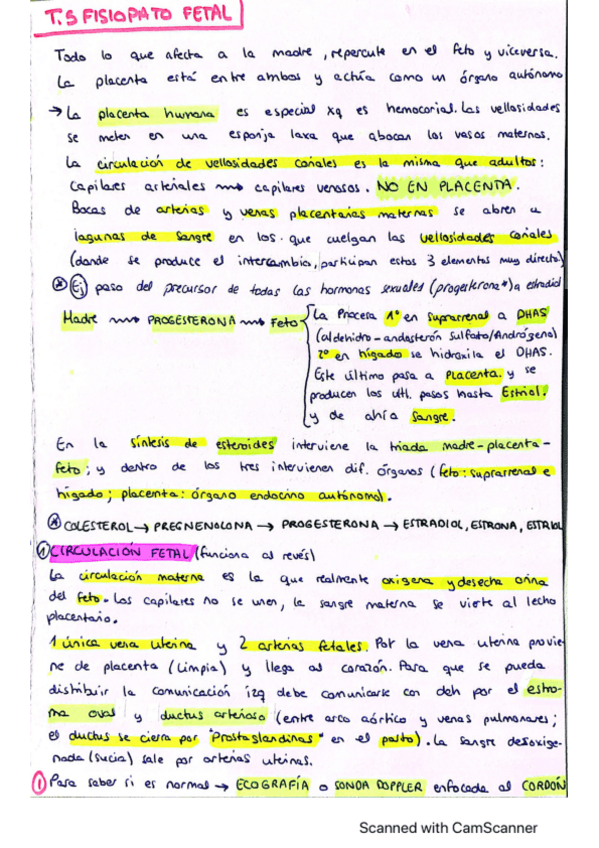 T.5 FISIOPATO FETAL
Todo lo que afecta a la madre, repercute en el feto y viceversa.
La placenta está entre ambos y actúa como un órgano autónomo
→ La placenta humana es especial xq es hemocorial. Las vellosidades
se meten en una esponja laxa que abocan los vasos maternos.
La circulación de vellosidades coriales es la misma que adultos:
Capilares arteriales ⟿ capilares venosos. NO EN PLACENTA.
Bocas de arterias y venas placentarias maternas se abren a
lagunas de sangre en los que cuelgan las vellosidades coriales
(donde se produce el intercambio, participan estos 3 elementos muy directo)
* Ej paso del precursor de todas las hormonas sexuales (progesterona*) a estradiol
Madre ⟿ PROGESTERONA ⟿ Feto
La procesa 1º en suprarrenal a DHAS
(aldehidro-andosterón sulfato/Andrógeno)
2º en hígado se hidroxila el DHAS.
Este último pasa a Placenta. y se
producen los últ. pasos hasta Estriol.
y de ahí a Sangre.
En la síntesis de esteroides interviene la triada madre-placenta-
feto; y dentro de los tres intervienen dif. órganos (feto: suprarrenal e
hígado; placenta: órgano endocrino autónomo).
* COLESTEROL → PREGNENOLONA → PROGESTERONA → ESTRADIOL, ESTRONA, ESTRIOL
1 CIRCULACIÓN FETAL (funciona al revés)
La circulación materna es la que realmente oxigena y desecha orina
del feto. Los capilares no se unen, la sangre materna se vierte al lecho
placentario.
1 única vena uterina y 2 arterias fetales. Por la vena uterina provie-
ne de placenta (limpia) y llega al corazón. Para que se pueda
distribuir la comunicación izq debe comunicarse con dch por el estro-
ma oval y ductus arterioso (entre arco aórtico y venas pulmonares;
el ductus se cierra por "Prostaglandinas" en el parto). La sangre desoxige-
nada (sucia) sale por arterias uterinas.
1 Para saber si es normal → ECOGRAFÍA o SONDA DOPPLER enfocada al CORDÓN
Scanned with CamScanner